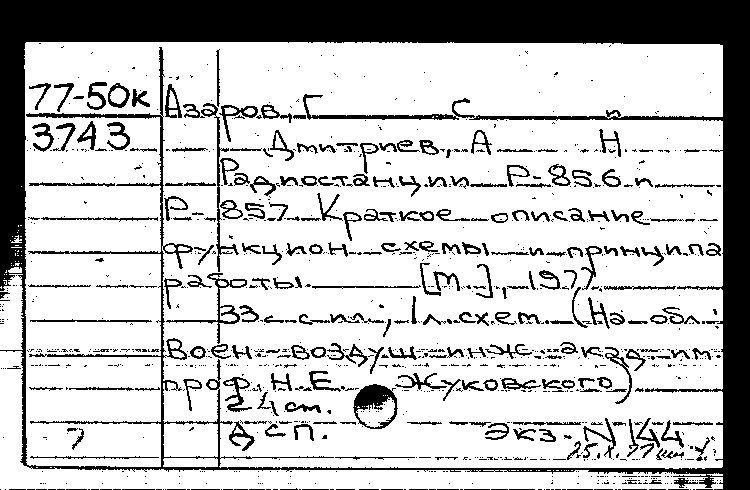 77-50к Азаров, Г С и
3743 Дмитриев, А Н
Радиостанции Р-856 и
Р-857. Краткое описание
функцион схемы и принципа
работы. [М.], 1977
33 с. с ил; 1 л. схем. (На обл.:
Воен-воздуш инж. акад. им.
проф. Н. Е. Жуковского)
24 см.
ДСП. Экз. N 144
25.X.77